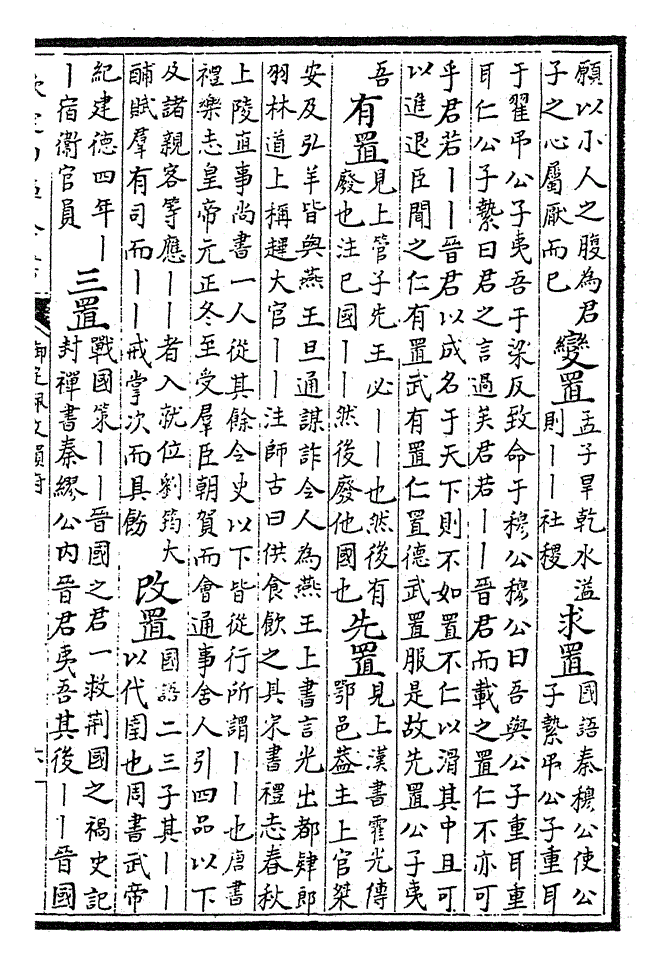 願以小人之腹為君
子之心屬厭而已
變置
孟子旱乾水溢
則丨丨社稷
求置
國語秦穆公使公
子縶弔公子重耳
于翟弔公子夷吾于梁反致命于穆公穆公曰吾與公子重耳重
耳仁公子縶曰君之言過矣君若丨丨晉君而載之置仁不亦可
乎君若丨丨晉君以成名于天下則不如置不仁以滑其中且可
以進退臣聞之仁有置武有置仁置德武置服是故先置公子夷
吾
有置
見上管子先王必丨丨也然後有
廢也注已國丨丨然後廢他國也
先置
見上漢書霍光傳
鄂邑蓋主上官桀
安及弘羊皆與燕王旦通謀詐令人為燕王上書言光出都肄郎
羽林道上稱趩大官丨丨注師古曰供食飲之具宋書禮志春秋
上陵直事尚書一人從其餘令史以下皆從行所謂丨丨也唐書
禮樂志皇帝元正冬至受羣臣朝賀而會通事舍人引四品以下
及諸親客等應丨丨者入就位劉筠大
酺賦羣有司而丨丨戒掌次而具飭
改置
國語二三子其丨丨
以代圉也周書武帝
紀建德四年丨
丨宿衛官員
三置
戰國策丨丨晉國之君一救荆國之禍史記
封禪書秦繆公内晉君夷吾其後丨丨晉國